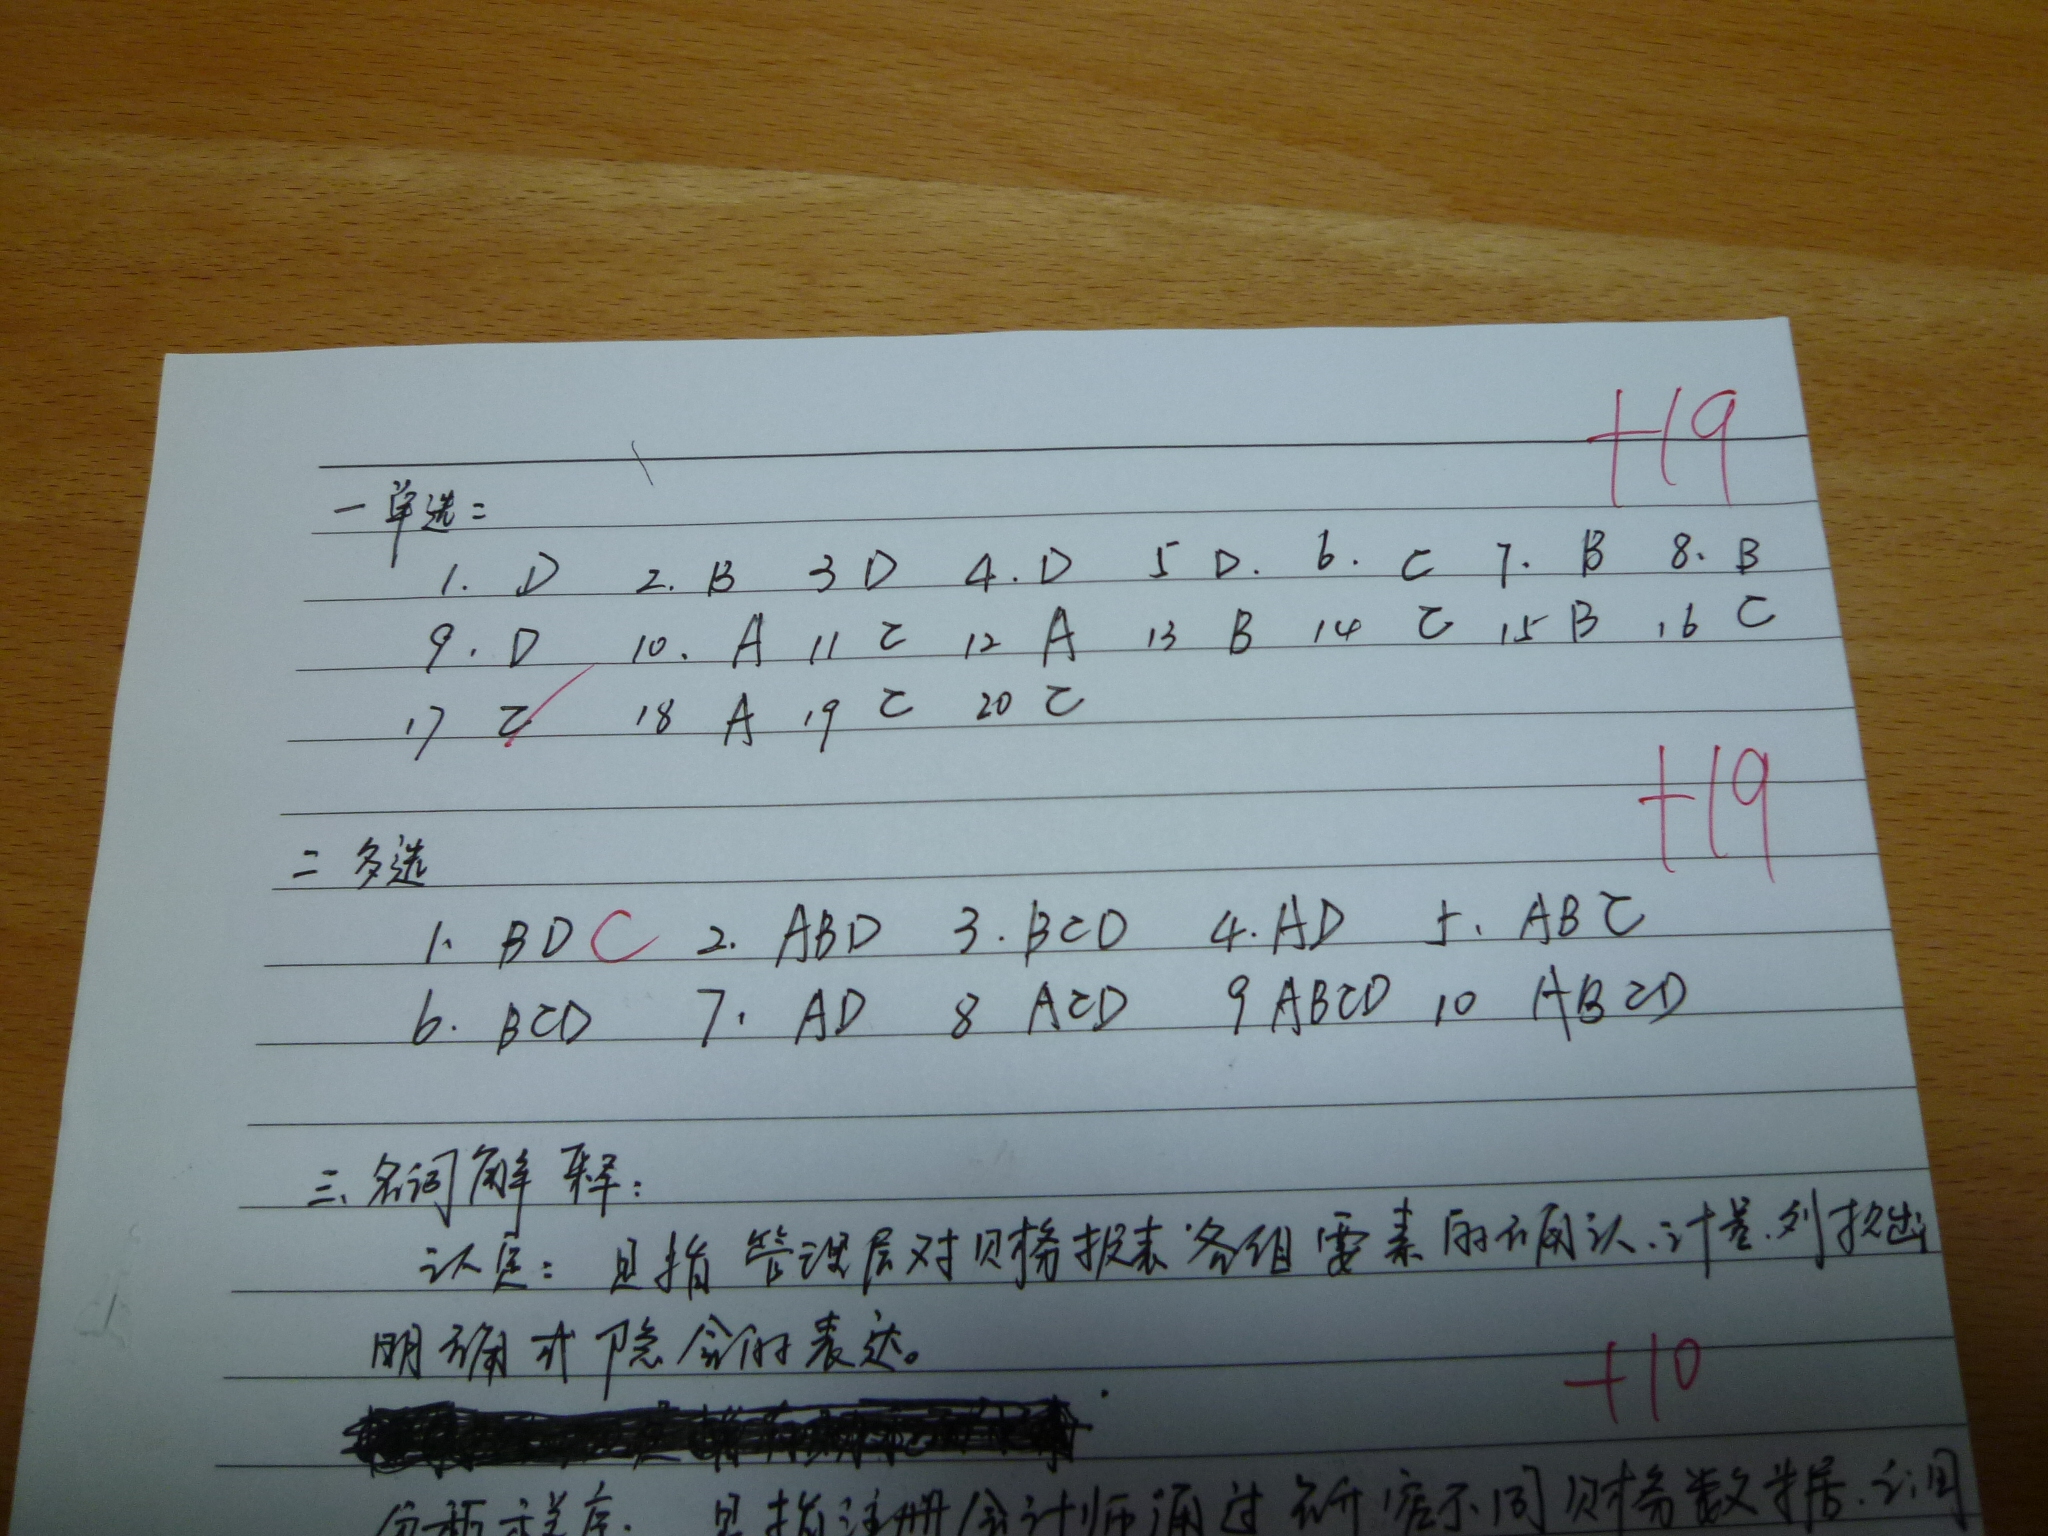 +19
一 单选：
1. D 2. B 3 D 4. D 5 D. 6. C 7. B 8. B
9. D 10. A 11 C 12 A 13 B 14 C 15 B 16 C
17 C 18 A 19 C 20 C
+19
二 多选
1. BD C 2. ABD 3. BCD 4. AD 5. ABC
6. BCD 7. AD 8 ACD 9 ABCD 10 ABCD
三、名词解释：
认定：是指管理层对财务报表各组要素的确认、计量、列报出
明确或隐含的表达。
+10
分析程序：是指注册会计师通过研究不同财务数据之间